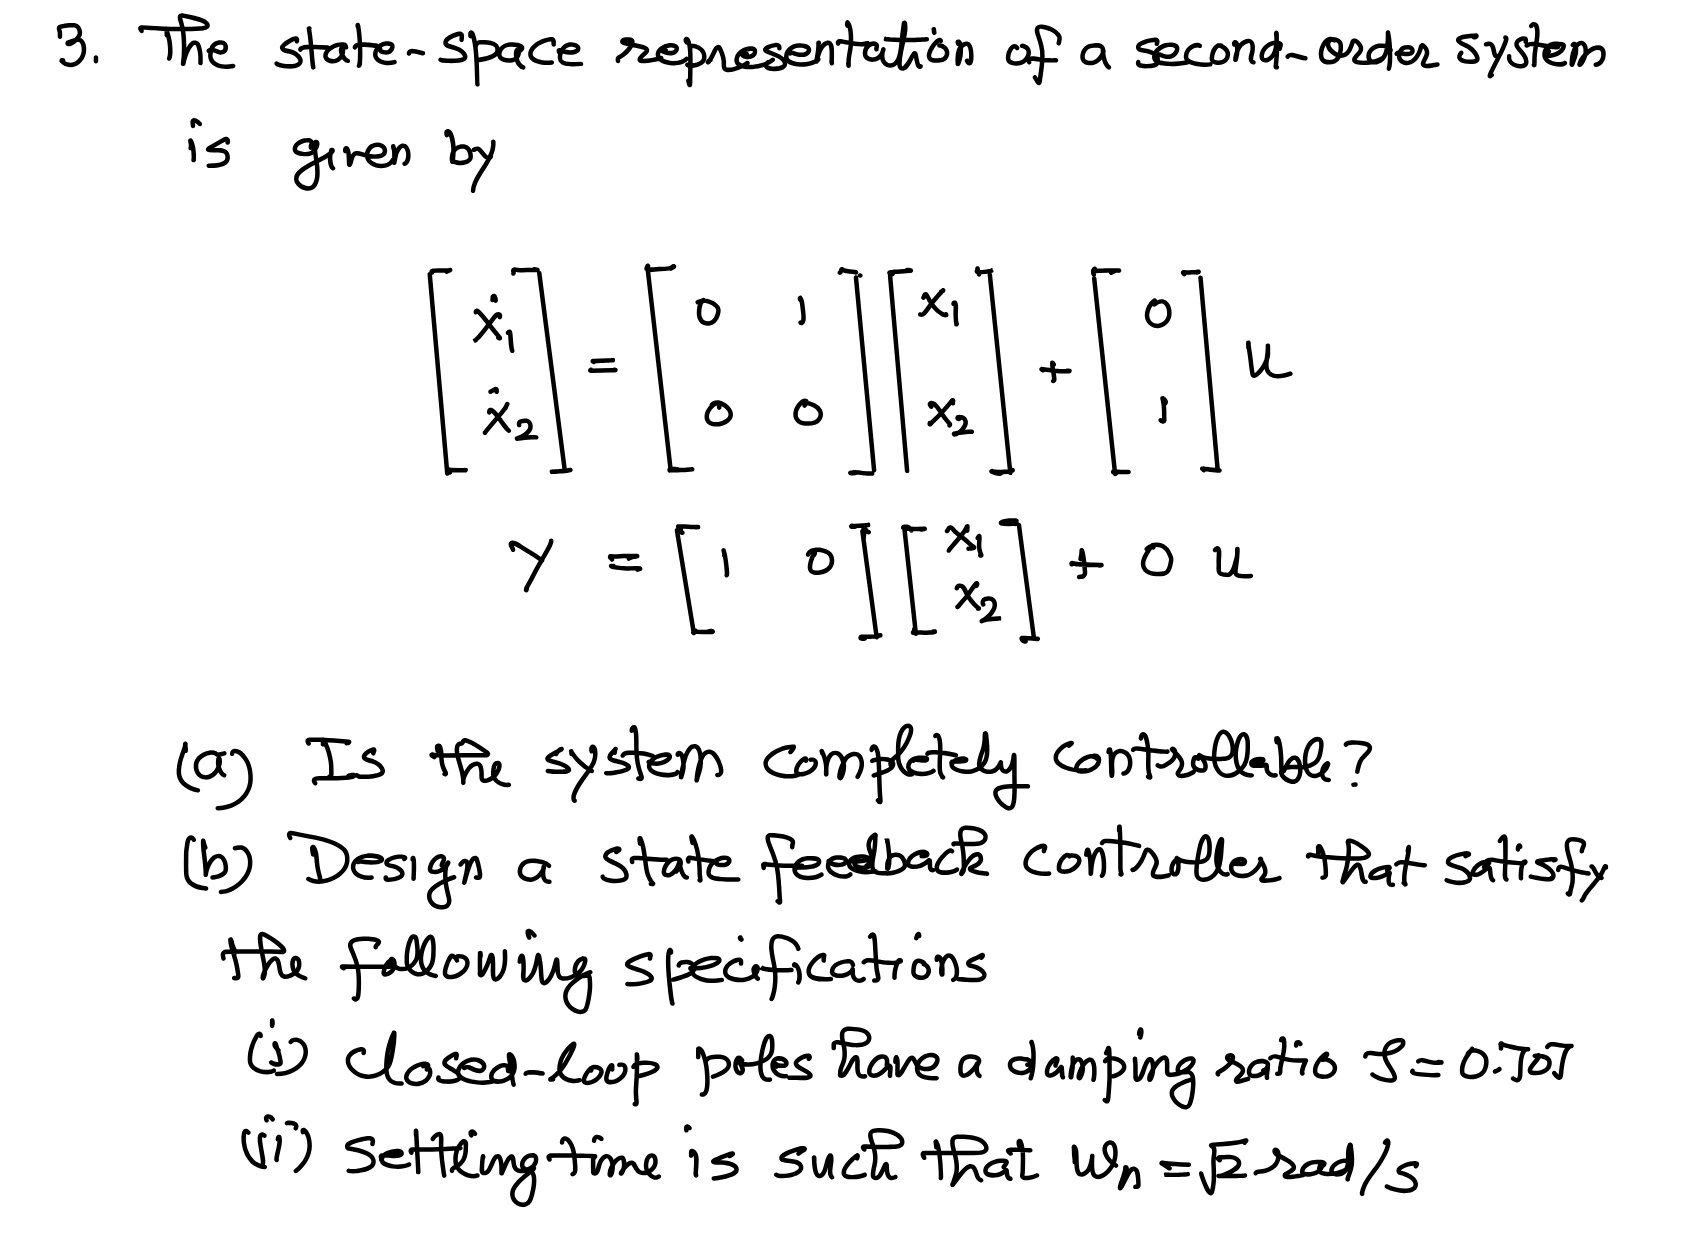 3. The state-space representation of a second-order system
is given by
[ẋ₁ ẋ₂] = [0 1; 0 0] [x₁ x₂] + [0 1] u
Y = [1 0] [x₁ x₂] + 0 u
(a) Is the system completely controllable?
(b) Design a state feedback controller that satisfy
the following specifications
(i) closed-loop poles have a damping ratio ζ = 0.707
(ii) settling time is such that Wn = √2 rad/s